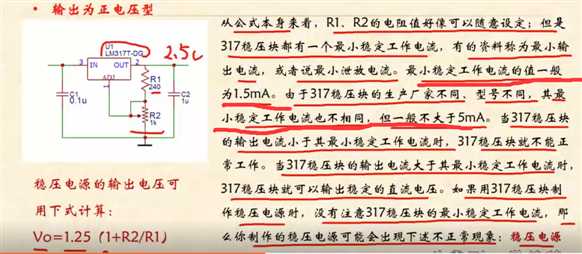 • 输出为正电压型
U1
LM317T-DG
2.5v
3
IN
OUT
2
ADJ
R1
240
C1
0.1u
R2
1k
C2
1u
稳压电源的输出电压可
用下式计算：
Vo=1.25（1+R2/R1）
从公式本身来看，R1、R2的电阻值好像可以随意设定；但是
317稳压块都有一个最小稳定工作电流，有的资料称为最小输
出电流，或者说最小泄放电流。最小稳定工作电流的值一般
为1.5mA。由于317稳压块的生产厂家不同、型号不同，其最
小稳定工作电流也不相同，但一般不大于5mA。当317稳压块
的输出电流小于其最小稳定工作电流时，317稳压块就不能正
常工作。当317稳压块的输出电流大于其最小稳定工作电流时，
317稳压块就可以输出稳定的直流电压。如果用317稳压块制
作稳压电源时，没有注意317稳压块的最小稳定工作电流，那
么你制作的稳压电源可能会出现下述不正常现象：稳压电源